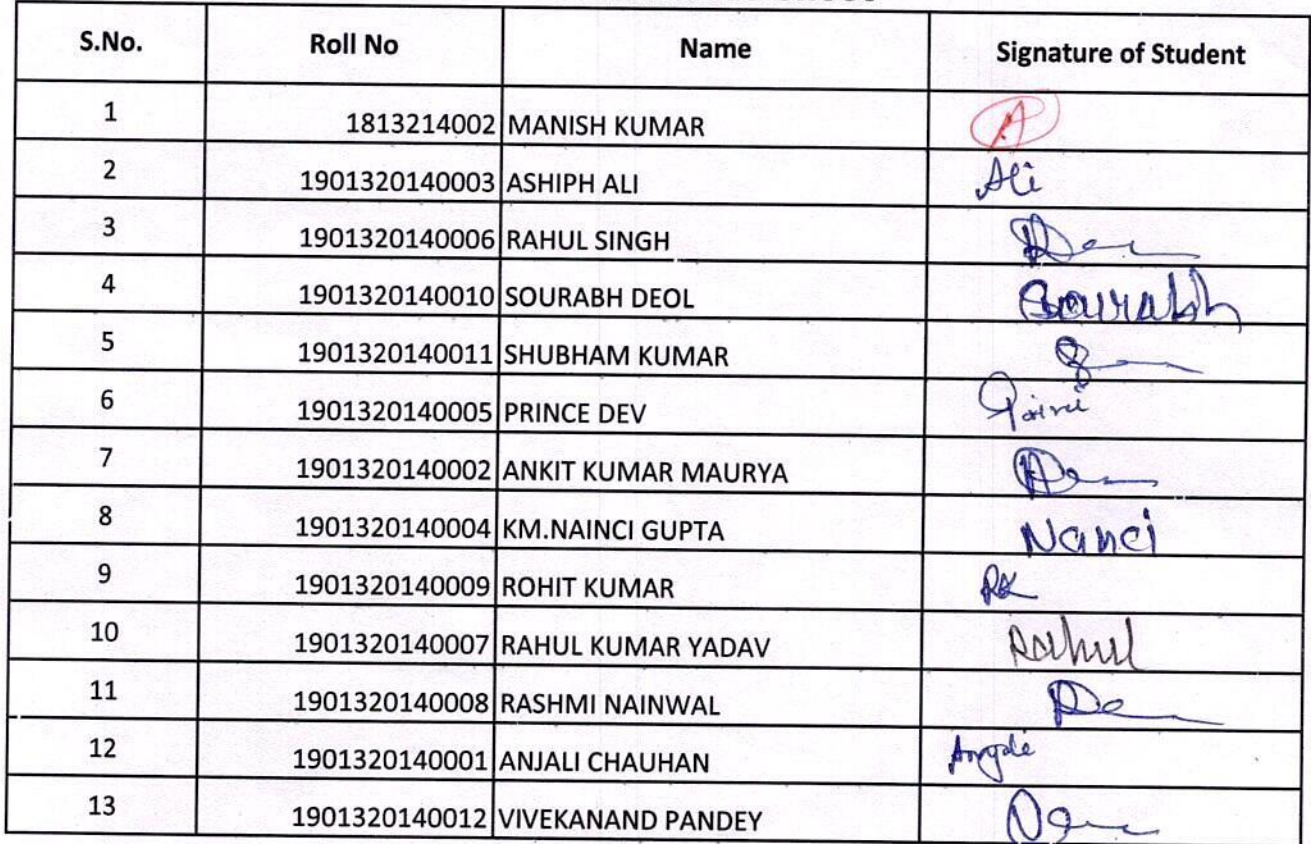 S.No. Roll No Name Signature of Student
1 1813214002 MANISH KUMAR A
2 1901320140003 ASHIPH ALI Ali
3 1901320140006 RAHUL SINGH
4 1901320140010 SOURABH DEOL Sourabh
5 1901320140011 SHUBHAM KUMAR
6 1901320140005 PRINCE DEV
7 1901320140002 ANKIT KUMAR MAURYA
8 1901320140004 KM.NAINCI GUPTA Nanci
9 1901320140009 ROHIT KUMAR RK
10 1901320140007 RAHUL KUMAR YADAV Rahul
11 1901320140008 RASHMI NAINWAL
12 1901320140001 ANJALI CHAUHAN
13 1901320140012 VIVEKANAND PANDEY